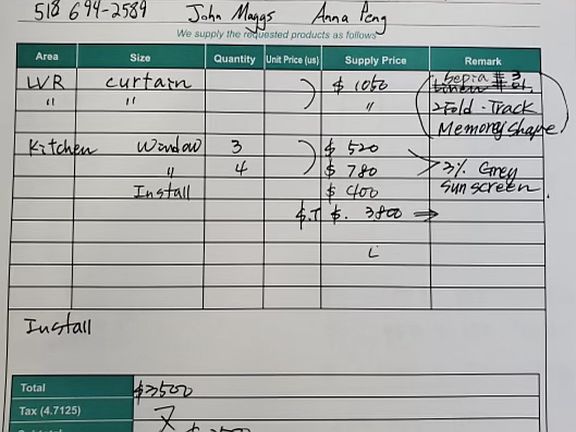 518 694-2589 John Maggs Anna Peng
We supply the requested products as follows
Area Size Quantity Unit Price (us) Supply Price Remark
LVR curtain $ 1050 Sepia # 3
" " "
2Fold - Track
Memory shape
Kitchen Window 3 $ 520
" 4 $ 780 3% Grey
Install $ 400 Sun screen
$.T $. 3800 ⇒
Install
Total $3500
Tax (4.7125)